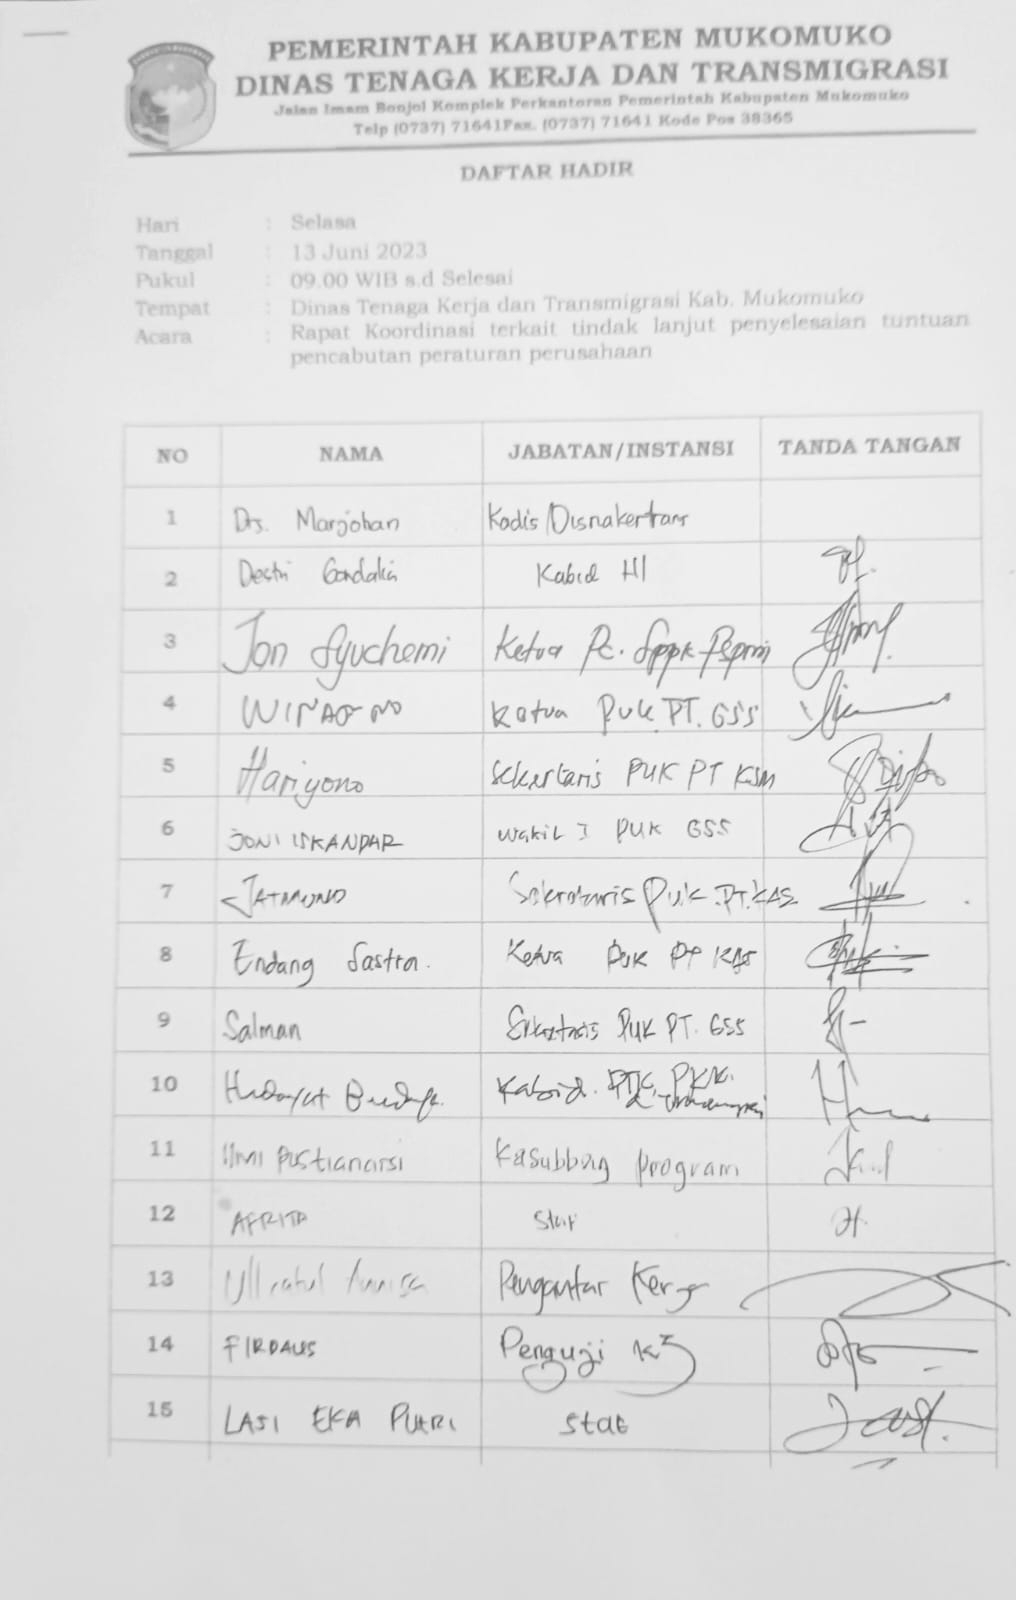 PEMERINTAH KABUPATEN MUKOMUKO
DINAS TENAGA KERJA DAN TRANSMIGRASI
Jalan Imam Bonjol Komplek Perkantoran Pemerintah Kabupaten Mukomuko
Telp (0737) 71641Fax. (0737) 71641 Kode Pos 38365
DAFTAR HADIR
Hari : Selasa
Tanggal : 13 Juni 2023
Pukul : 09.00 WIB s.d Selesai
Tempat : Dinas Tenaga Kerja dan Transmigrasi Kab. Mukomuko
Acara : Rapat Koordinasi terkait tindak lanjut penyelesaian tuntuan
pencabutan peraturan perusahaan
NO NAMA JABATAN/INSTANSI TANDA TANGAN
1 Drs. Marjohan Kadis/Disnakertrans
2 Destri Kabid HI
3 Jon Syuchemi Ketua Pc. Sppk
4 WINARNO Ketua PUK PT. GSS
5 Hariyono Sekertaris PUK PT KSM
6 JONI ISKANDAR Wakil I PUK GSS
7 JATMIKO Sekretaris PUK.PT.KAS
8 Endang Sastra. Ketua PUK PT KAS
9 Salman PUK PT. GSS
10 Hidayat Kabid. PTK, PKK.
11 Kasubbag program
12 AFRITA Staf
13 Annisa Pengantar Kerja
14 FIRDAUS Penguji K3
15 LASI EKA PUTRI Staf